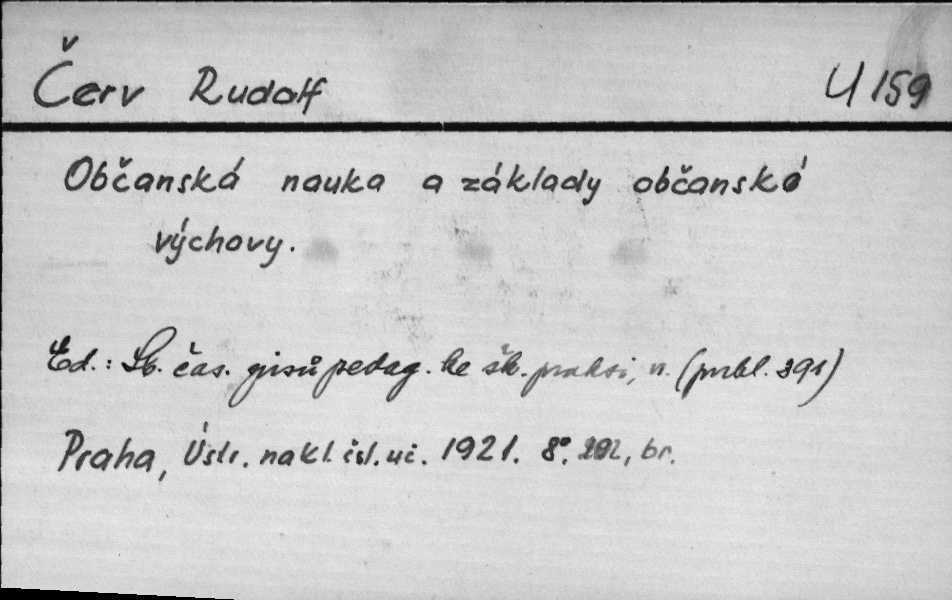 Červ Rudolf U 159
Občanská nauka a základy občanské
výchovy.
Ed.: Sb. čas. spisů pedag. ke šk. praksi, n. (publ. 391)
Praha, Ústr. nakl. čsl. uč. 1921. 8°. br.